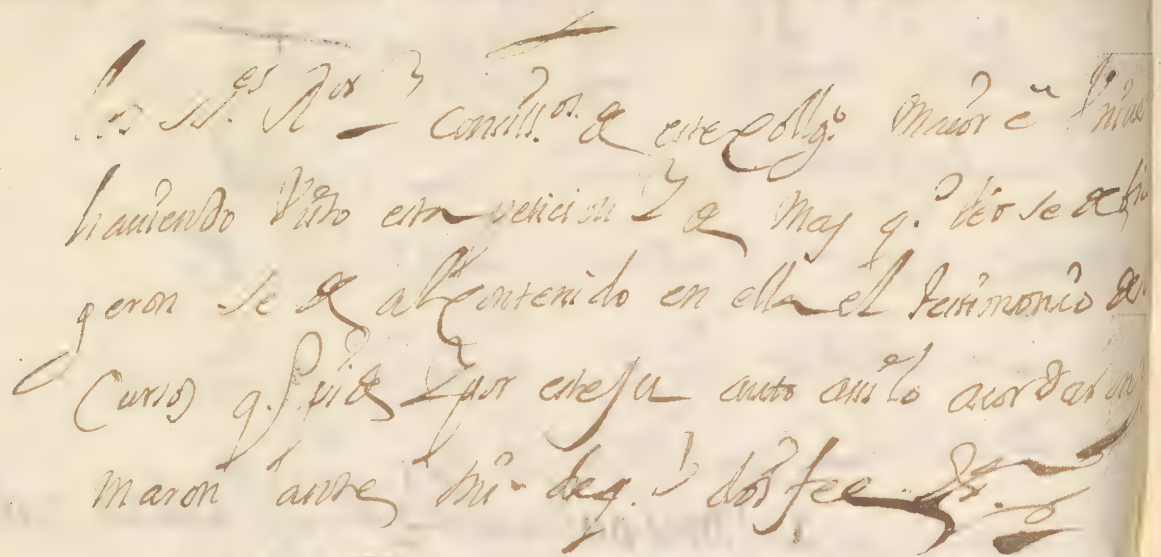 los SS.es R.or y Consill.os de este Collg.o Maior e Vniver
haviendo visto esta peticion y de mas q.e
geron se de al contenido en ella el testimonio de
Cursos q. pide y por este su auto assi lo acordaron
maron ante mi de q. doi fee